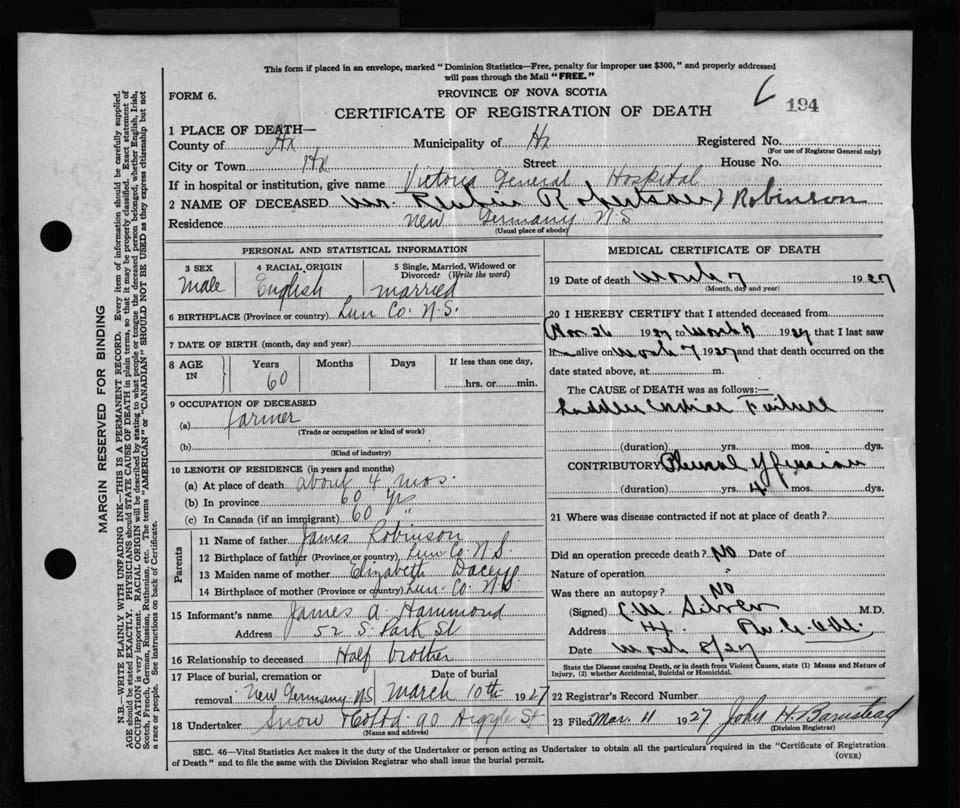 This form if placed in an envelope, marked "Dominion Statistics—Free, penalty for improper use $300," and properly addressed
will pass through the Mail "FREE."
FORM 6.
PROVINCE OF NOVA SCOTIA
CERTIFICATE OF REGISTRATION OF DEATH
194
1 PLACE OF DEATH—
County of Hx Municipality of Hx Registered No.
(For use of Registrar General only)
City or Town Hx Street House No.
If in hospital or institution, give name Victoria General Hospital
2 NAME OF DECEASED Reubin Robinson
Residence New Germany N.S
(Usual place of abode)
PERSONAL AND STATISTICAL INFORMATION
3 SEX
Male
4 RACIAL ORIGIN
English
5 Single, Married, Widowed or
Divorced? (Write the word)
married
6 BIRTHPLACE (Province or country) Lun Co. N.S.
7 DATE OF BIRTH (month, day and year)
8 AGE
IN
Years
60
Months
Days
If less than one day,
hrs. or min.
9 OCCUPATION OF DECEASED
(a) farmer
(Trade or occupation or kind of work)
(b)
(Kind of industry)
10 LENGTH OF RESIDENCE (in years and months)
(a) At place of death about 4 mos.
(b) In province 60 yrs
(c) In Canada (if an immigrant) 60 "
Parents
11 Name of father James Robinson
12 Birthplace of father (Province or country) Lun Co. N.S.
13 Maiden name of mother Elizabeth Dacey
14 Birthplace of mother (Province or country) Lun. Co. N.S
15 Informant's name James A. Hammond
Address 52 S. Park St
16 Relationship to deceased Half brother
17 Place of burial, cremation or
removal New Germany NS
Date of burial
March 10th 1927
18 Undertaker Snow & Co Ltd. 90 Argyle St
(Name and address)
MEDICAL CERTIFICATE OF DEATH
19 Date of death March 7 1927
(Month, day and year)
20 I HEREBY CERTIFY that I attended deceased from
Nov. 26 1927 to March 7 1927 that I last saw
H alive on March 7 1927 and that death occurred on the
date stated above, at m.
The CAUSE of DEATH was as follows:—
Sudden Cardiac Failure
(duration) yrs. mos. dys.
CONTRIBUTORY Pleural Effusion
(duration) yrs. 4 mos. dys.
21 Where was disease contracted if not at place of death?
Did an operation precede death? No Date of
Nature of operation
Was there an autopsy? No
(Signed) C.M. Silver M.D.
Address
Date March 8/27
State the Disease causing Death, or in death from Violent Causes, state (1) Means and Nature of
Injury, (2) whether Accidental, Suicidal or Homicidal.
22 Registrar's Record Number
23 Filed Mar. 11 1927 John H. Barnstead
(Division Registrar)
SEC. 46—Vital Statistics Act makes it the duty of the Undertaker or person acting as Undertaker to obtain all the particulars required in the "Certificate of Registration
of Death" and to file the same with the Division Registrar who shall issue the burial permit.
(OVER)
MARGIN RESERVED FOR BINDING
N.B.—WRITE PLAINLY WITH UNFADING INK—THIS IS A PERMANENT RECORD. Every item of information should be carefully supplied.
AGE should be stated EXACTLY. PHYSICIANS should STATE CAUSE OF DEATH in plain terms, so that it may be properly classified. Exact statement of
OCCUPATION is very important. RACIAL ORIGIN will be described by stating to what people or tongue the deceased person belonged, whether English, Irish,
Scotch, French, German, Russian, Ruthenian, etc. The terms "AMERICAN" or "CANADIAN" SHOULD NOT BE USED as they express citizenship but not
a race or people. See instructions on back of Certificate.